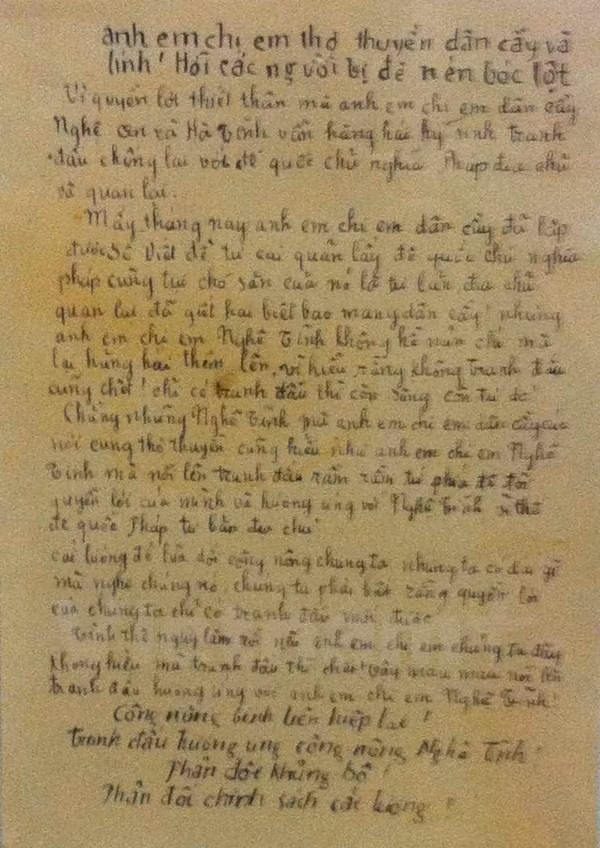 anh em chị em thợ thuyền dân cầy và
lính! Hỡi các người bị đè nén bóc lột
Vì quyền lợi thiết thân mà anh em chị em dân cầy
Nghệ an và Hà Tĩnh vẫn hăng hái hy sinh tranh
đấu chống lại với đế quốc chủ nghĩa Pháp địa chủ
và quan lại.
Mấy tháng nay anh em chị em dân cầy đã lập
được Sô Viết để tự cai quản lấy đế quốc chủ nghĩa
pháp cùng tụi chó săn của nó là tư bản, địa chủ
quan lại đã giết hại biết bao mạng dân cầy! nhưng
anh em chị em Nghệ Tĩnh không hề nản chí mà
lại hăng hái thêm lên, vì hiểu rằng không tranh đấu
cũng chết! chỉ có tranh đấu thì còn sống còn tự do!
Chẳng những Nghệ Tĩnh mà anh em chị em dân cầy các
nơi cùng thợ thuyền cũng hiểu như anh em chị em Nghệ
Tĩnh mà nổi lên tranh đấu rầm rầm tứ phía để đòi
quyền lợi của mình và hưởng ứng với Nghệ Tĩnh vì thế
đế quốc Pháp tư bản địa chủ
cải lương để lừa dối công nông chúng ta nhưng ta có dại gì
mà nghe chúng nó, chúng ta phải biết rằng quyền lợi
của chúng ta chỉ có tranh đấu mới được
Tình thế nguy lắm rồi nếu anh em chị em chúng ta đây
không hiểu mà tranh đấu thì chết! vậy mau mau nổi lên
tranh đấu hưởng ứng với anh em chị em Nghệ Tĩnh!
Công nông binh liên hiệp lại!
Tranh đấu hưởng ứng công nông Nghệ Tĩnh!
Phản đối khủng bố!
Phản đối chính sách cải lương!